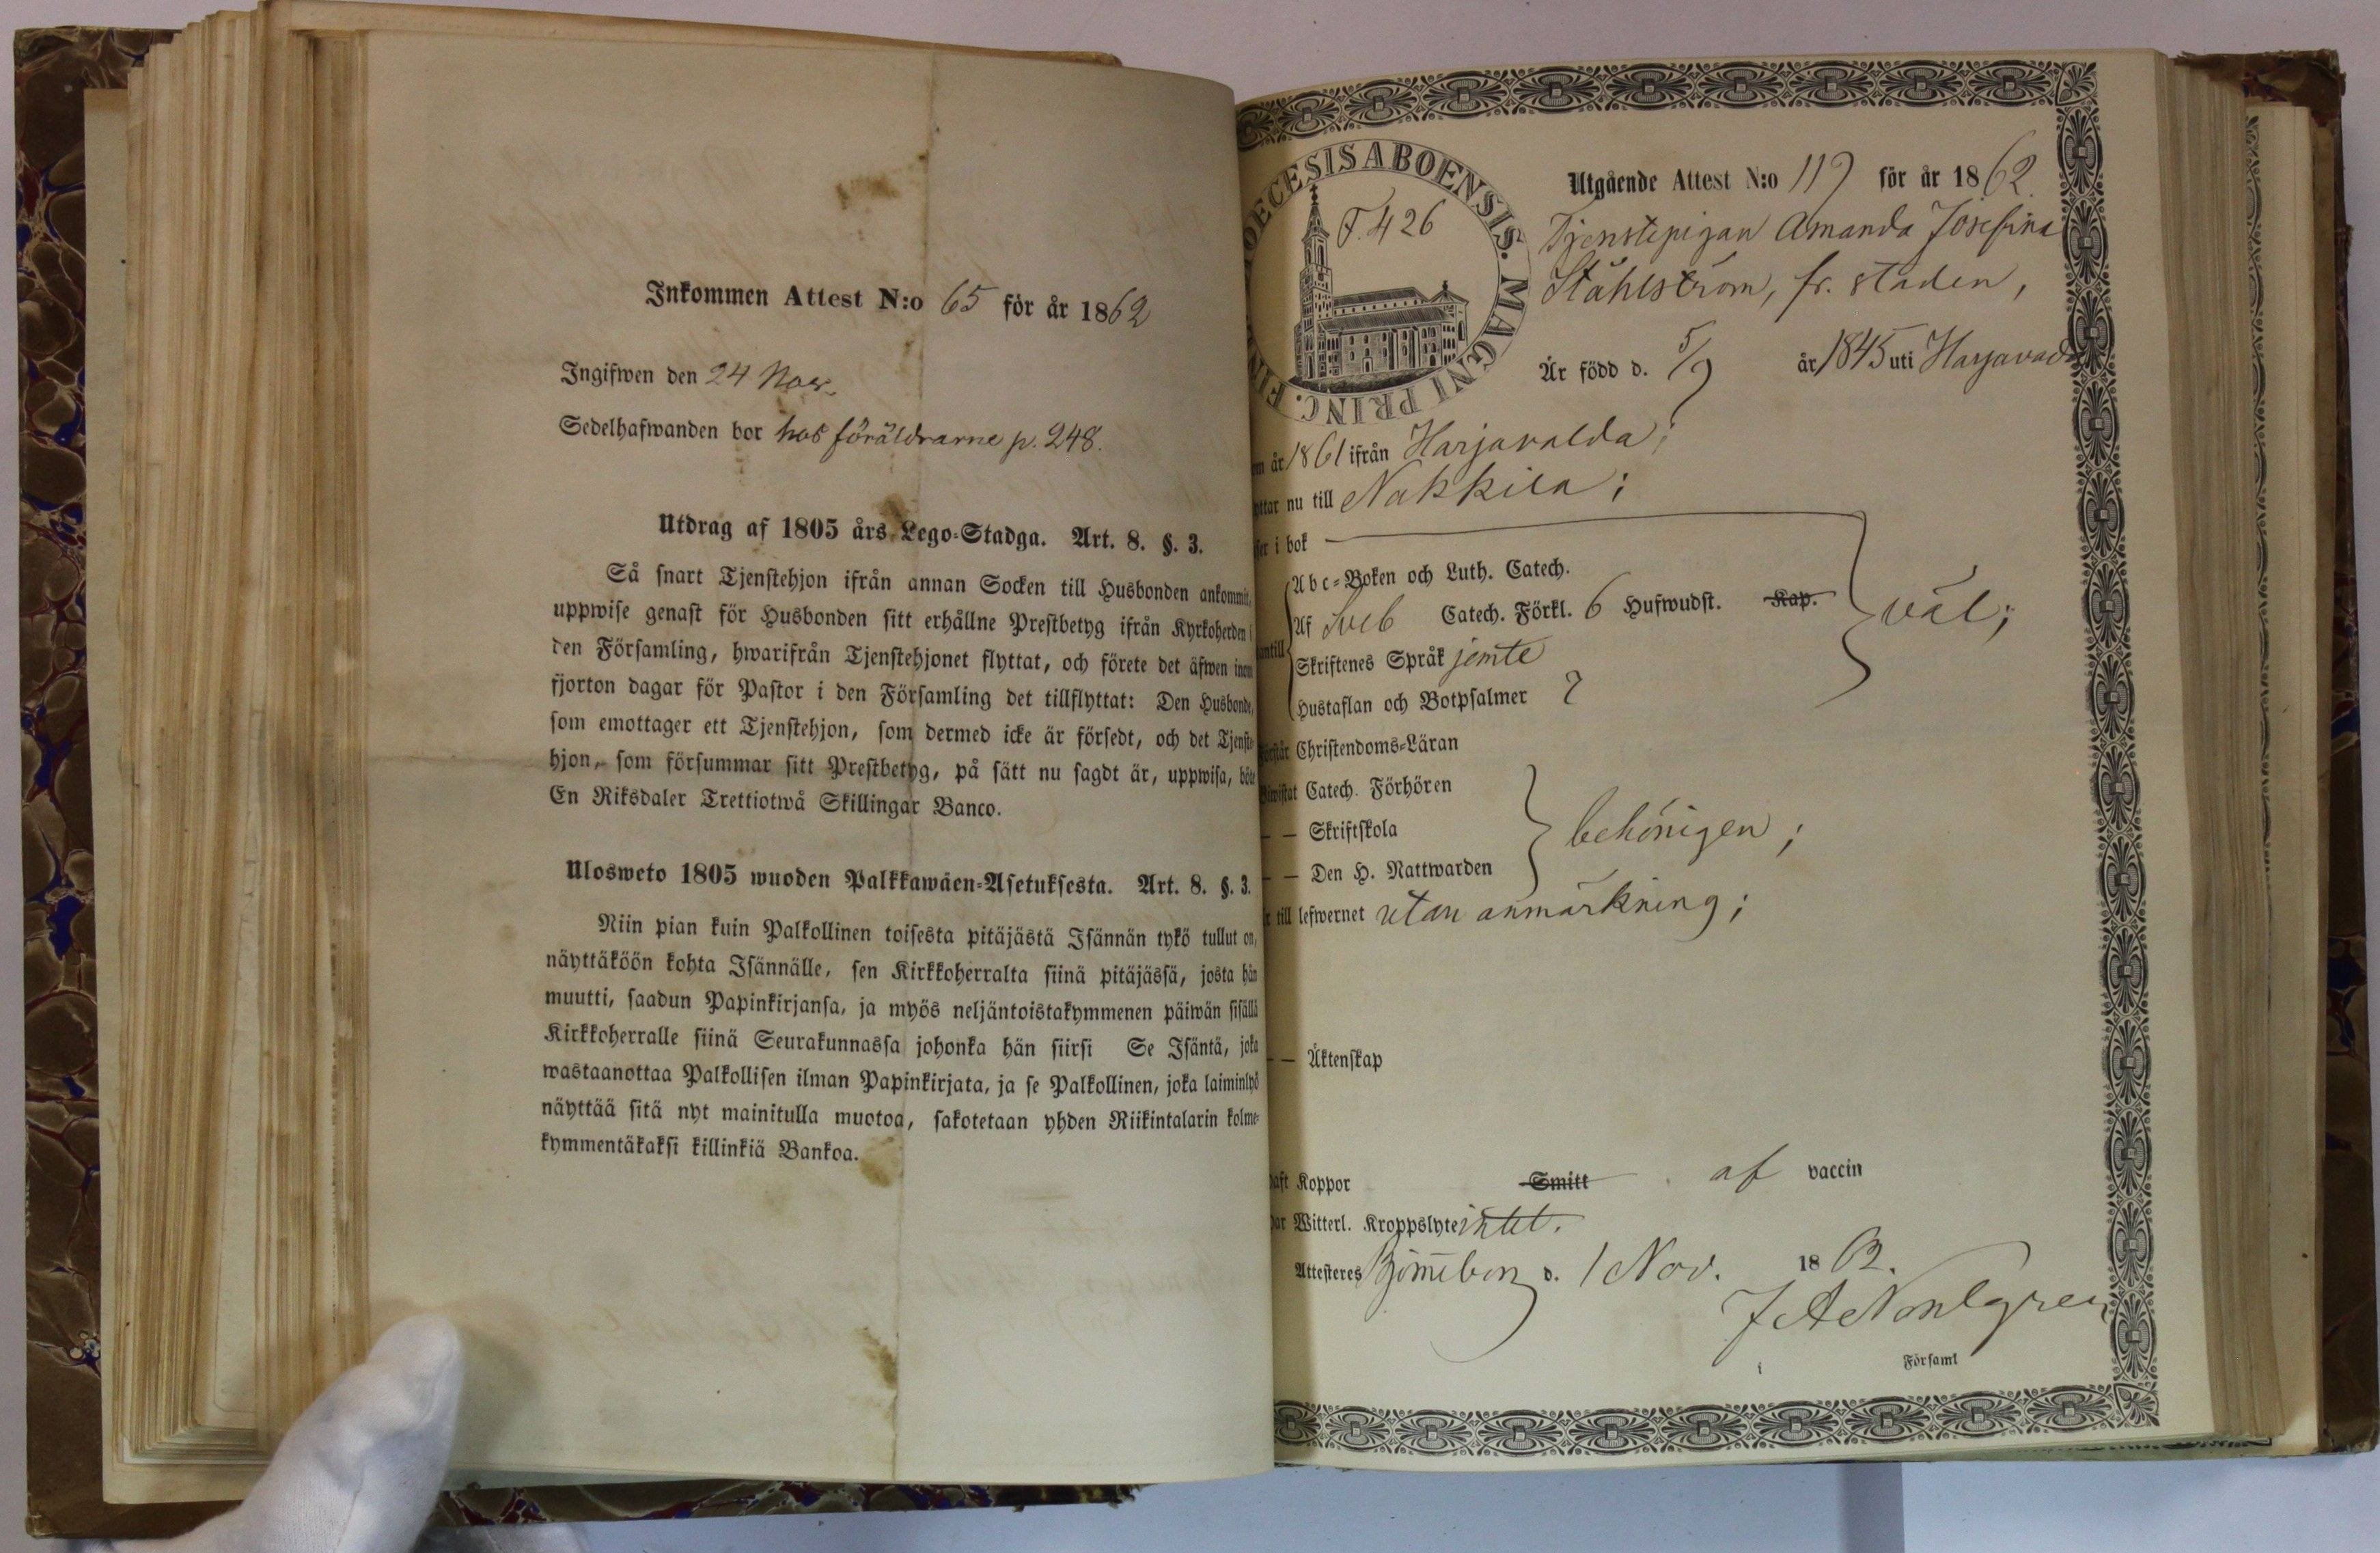 Inkommen Attest N:o 65 för år 1862
Ingifwen den 24 Nov.
Sedelhafwanden bor hos föräldrarne p. 248.
Utdrag af 1805 års Lego-Stadga. Art. 8. §. 3.
Så snart Tjenstehjon ifrån annan Socken till Husbonden ankommit,
uppwise genast för Husbonden sitt erhållne Prestbetyg ifrån Kyrkoherden i
den Församling, hwarifrån Tjenstehjonet flyttat, och förete det äfwen inom
fjorton dagar för Pastor i den Församling det tillflyttat: Den Husbonde,
som emottager ett Tjenstehjon, som dermed icke är försedt, och det Tjenste-
hjon, som försummar sitt Prestbetyg, på sätt nu sagdt är, uppwisa, böte
En Riksdaler Trettiotwå Skillingar Banco.
Ulosweto 1805 wuoden Palkkawäen-Asetuksesta. Art. 8. §. 3.
Niin pian kuin Palkollinen toisesta pitäjästä Isännän tykö tullut on,
näyttäköön kohta Isännälle, sen Kirkkoherralta siinä pitäjässä, josta hän
muutti, saadun Papinkirjansa, ja myös neljäntoistakymmenen päiwän sisällä
Kirkkoherralle siinä Seurakunnassa johonka hän siirsi Se Isäntä, joka
wastaanottaa Palkollisen ilman Papinkirjata, ja se Palkollinen, joka laiminlyö
näyttää sitä nyt mainitulla muotoa, sakotetaan yhden Riikintalarin kolme-
kymmentäkaksi killinkiä Bankoa.
OECESIS ABOENSIS. MAGNI PRINC. FIN
F. 426
Utgående Attest N:o 119 för år 1862.
Tjenstepigan Amanda Josefina
Ståhlström, fr. staden,
Är född d. 5/9 år 1845 uti Harjavalda
m år 1861 ifrån Harjavalda;
yttar nu till Nakkila;
ser i bok
Abc-Boken och Luth. Catech.
Af Sveb Catech. Förkl. 6 Hufwudst. Kap. väl;
antill
Skriftenes Språk jemte
Hustaflan och Botpsalmer
Förstår Christendoms-Läran
Bewistat Catech. Förhören
— — Skriftskola behörigen;
— — Den H. Nattwarden
r till lefwernet utan anmärkning;
— — Äktenskap
haft Koppor Smitt af vaccin
har Witterl. Kroppslyte intet.
Attesteres Björneborg d. 1 Nov. 1862.
J A Norlgren
i Församl